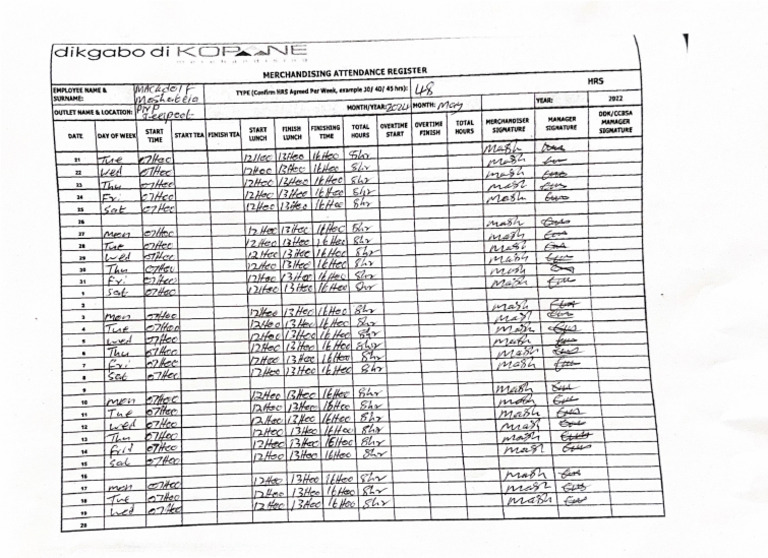 dikgabo di KOPANE
merchandising
MERCHANDISING ATTENDANCE REGISTER
EMPLOYEE NAME & SURNAME: TYPE (Confirm HRS Agreed Per Week, example 30/ 40/ 45 hrs): 48 HRS
OUTLET NAME & LOCATION: MONTH/YEAR: 2024 MONTH: May YEAR: 2022
DATE DAY OF WEEK START TIME START TEA FINISH TEA START LUNCH FINISH LUNCH FINISHING TIME TOTAL HOURS OVERTIME START OVERTIME FINISH TOTAL HOURS MERCHANDISER SIGNATURE MANAGER SIGNATURE DDK/CCBSA MANAGER SIGNATURE
21 Tue 07H00 12H00 13H00 16H00 8hr Mash
22 Wed 07H00 12H00 13H00 16H00 8hr Mash
23 Thu 07H00 12H00 13H00 16H00 8hr Mash
24 Fri 07H00 12H00 13H00 16H00 8hr Mash
25 Sat 07H00 12H00 13H00 16H00 8hr Mash
26
27 Mon 07H00 12H00 13H00 16H00 8hr Mash
28 Tue 07H00 12H00 13H00 16H00 8hr Mash
29 Wed 07H00 12H00 13H00 16H00 8hr Mash
30 Thu 07H00 12H00 13H00 16H00 8hr Mash
31 Fri 07H00 12H00 13H00 16H00 8hr Mash
1 Sat 07H00 12H00 13H00 16H00 8hr Mash
2
3 Mon 07H00 12H00 13H00 16H00 8hr Mash
4 Tue 07H00 12H00 13H00 16H00 8hr Mash
5 Wed 07H00 12H00 13H00 16H00 8hr Mash
6 Thu 07H00 12H00 13H00 16H00 8hr Mash
7 Fri 07H00 12H00 13H00 16H00 8hr Mash
8 Sat 07H00 12H00 13H00 16H00 8hr Mash
9
10 Mon 07H00 12H00 13H00 16H00 8hr Mash
11 Tue 07H00 12H00 13H00 16H00 8hr Mash
12 Wed 07H00 12H00 13H00 16H00 8hr Mash
13 Thu 07H00 12H00 13H00 16H00 8hr Mash
14 Frid 07H00 12H00 13H00 16H00 8hr Mash
15 Sat 07H00 12H00 13H00 16H00 8hr Mash
16
17 Mon 07H00 12H00 13H00 16H00 8hr Mash
18 Tue 07H00 12H00 13H00 16H00 8hr Mash
19 Wed 07H00 12H00 13H00 16H00 8hr Mash
20